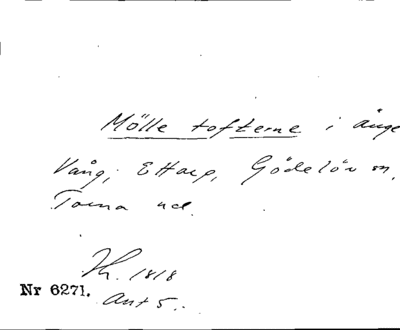 Mölle tofterne i änge
Vång; Ettarp, Gödelöv sn,
Torna hd.
Kr. 1818
Nr 6271.
Akt 5.